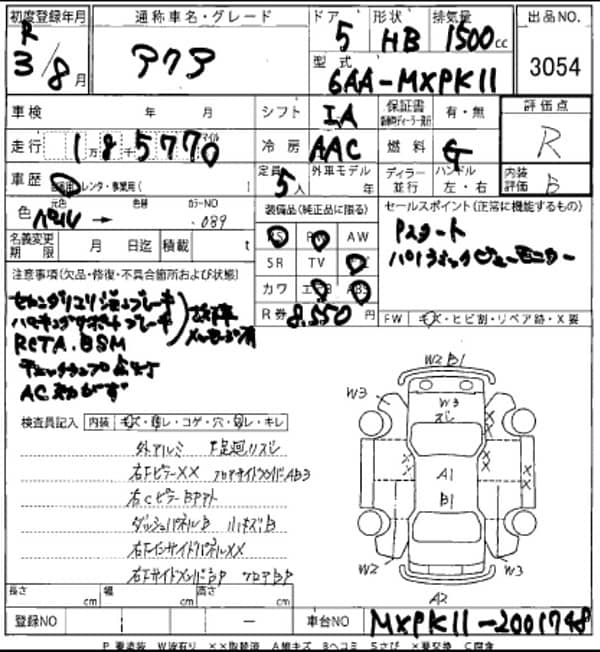 初度登録年月
R
3/8月
通称車名・グレード
アクア
ドア
5
形状
HB
排気量
1500cc
型式
6AA-MXPK11
出品NO.
3054
車検 年 月
シフト IA
保証書 有・無
評価点
R
走行 1万8千5770
冷房 AAC
燃料 G
車歴 レンタ・事業用(
定員 5人
外車モデル 年
ディラー 並行
ハンドル 左・右
内装評価 B
色 元色 パール → 色替 カラーNO 089
装備品(純正品に限る)
セールスポイント(正常に機能するもの)
名義変更期限 月 日迄 積載 t
PS PW AW
Pスタート
SR TV
パノラミックビューモニター
カワ エアB ABS
R券 8,550円
FW キズ・ヒビ割・リペア跡・X要
注意事項(欠品・修復・不具合箇所および状態)
セカンダリコリジョンブレーキ
パーキングサポートブレーキ
RCTA.BSM
故障
チェックランプ点灯
AC効かず
検査員記入 内装 キズ・汚レ・コゲ・穴・・キレ
外アルミ 下足廻リズレ
右Fピラー×× フロアサイドメンバAB3
右CピラーBPアト
ダッシュパネルB 小キズB
右FインサイドパネルXX
右FサイドメンバBP フロアBP
W2 B1
W3
W3
ズレ
W3
A1
B1
W2
W3
A2
長さ cm 幅 cm 高さ cm
登録NO ー
車台NO MXPK11-2001748
P 要塗装 W波有り ××取替済 A線キズ Bヘコミ Sさび ×要交換 C腐食